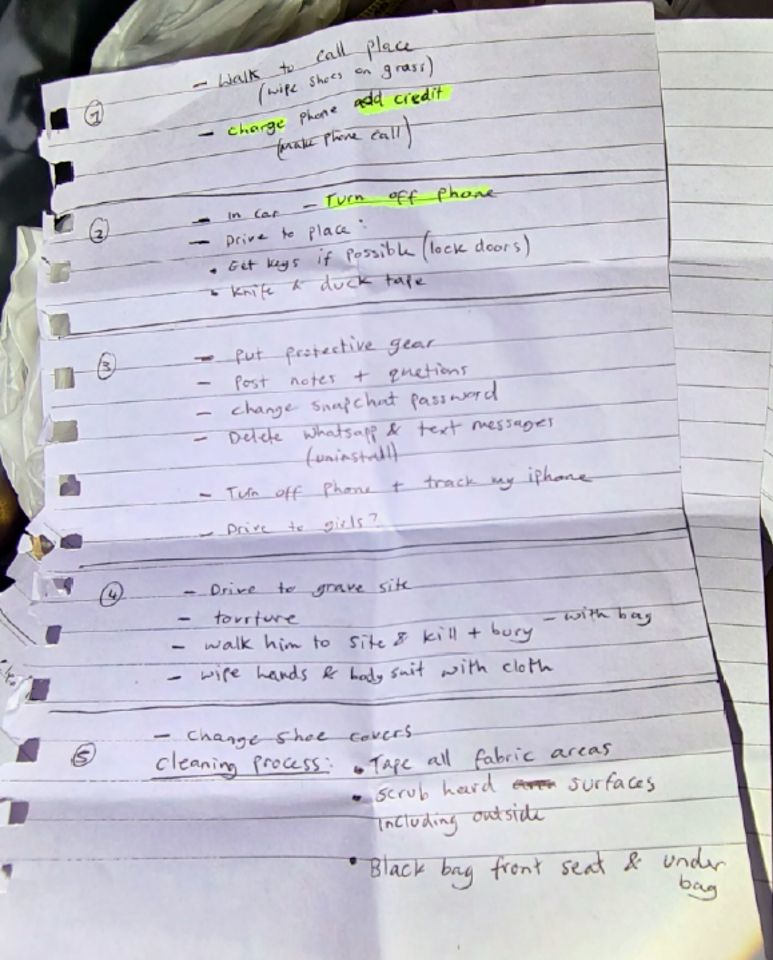 ① - Walk to call place
(wipe shoes on grass)
- charge phone add credit
(make phone call)
② - In car - Turn off phone
- Drive to place:
• Get keys if possible (lock doors)
• knife & duck tape
③ - put protective gear
- Post notes + quetions
- change snapchat password
- Delete whatsapp & text messages
(uninstall)
- Turn off phone + track my iphone
- Drive to girls?
④ - Drive to grave site
- tourture
- walk him to site & kill + bury - with bag
- wipe hands & body suit with cloth
- change shoe covers
⑤ cleaning process: • Tape all fabric areas
• scrub hard surfaces
including outside
• Black bag front seat & under
bag